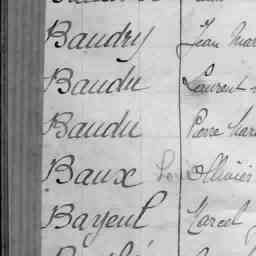 Baudry Jean Mar
Baudu Laurent
Baudu Pierre Mar
Baux Ollivier
Bayeul Marcel